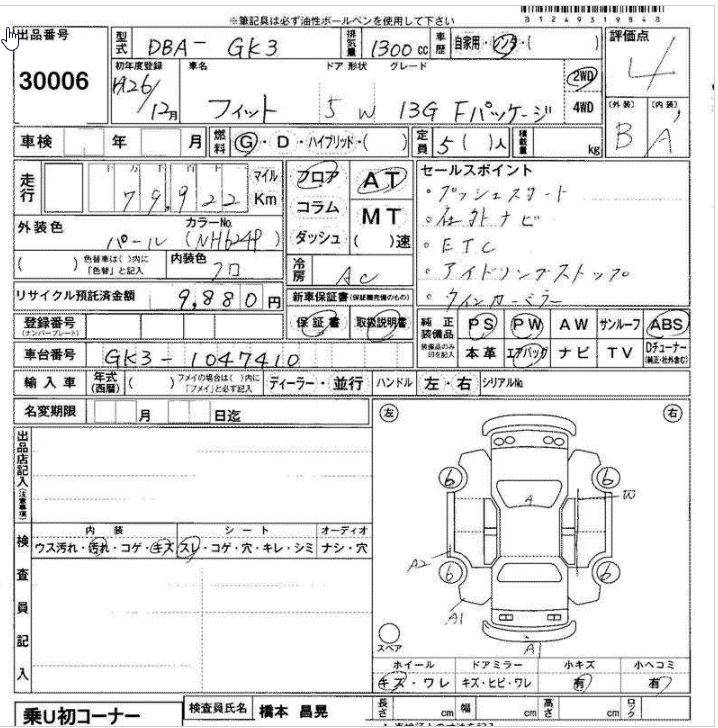 ※筆記具は必ず油性ボールペンを使用して下さい
8 1 2 4 9 3 1 9 8 4 8
出品番号 30006
型式 DBA- GK3 排気量 1300 cc 車歴 自家用・レンタ・( )
評価点 4
初年度登録 H26/12月 車名 フィット ドア 形状 5 W グレード 13G Fパッケージ 2WD 4WD
(外装) B (内装) A
車検 年 月 燃料 G・D・ハイブリッド・( ) 定員 5( )人 積載量 kg
走行 十 万 千 百 十 79,922 マイル Km
フロア コラム ダッシュ
AT MT ( )速
セールスポイント
・プッシュスタート
・社外ナビ
・ETC
・アイドリングストップ
・ウインカーミラー
外装色 パール カラーNo. (NH624P)
( ) 色替車は( )内に「色替」と記入 内装色 クロ
冷房 AC
リサイクル預託済金額 9,880 円
新車保証書(保証継続可能のもの)
保証書 取扱説明書
登録番号 (ナンバープレート)
純正装備品 PS PW AW サンルーフ ABS
装備品のみ印を記入 本革 エアバッグ ナビ TV Dチューナー(純正・社外含む)
車台番号 GK3-1047410
輸入車 年式(西暦) ( ) フメイの場合は( )内に「フメイ」と必ず記入 ディーラー・並行 ハンドル 左・右 シリアルNo.
名変期限 月 日迄
出品店記入(注意事項)
左 右
6 6 6 6
A W A2 A1 A1
スペア
検査員記入
内装 シート オーディオ
ウス汚れ・汚れ・コゲ・キズ スレ・コゲ・穴・キレ・シミ ナシ・穴
ホイール ドアミラー 小キズ 小ヘコミ
キズ・ワレ キズ・ヒビ・ワレ 有 有
乗U初コーナー 検査員氏名 橋本 昌晃 長さ cm 幅 cm 高さ cm ロック